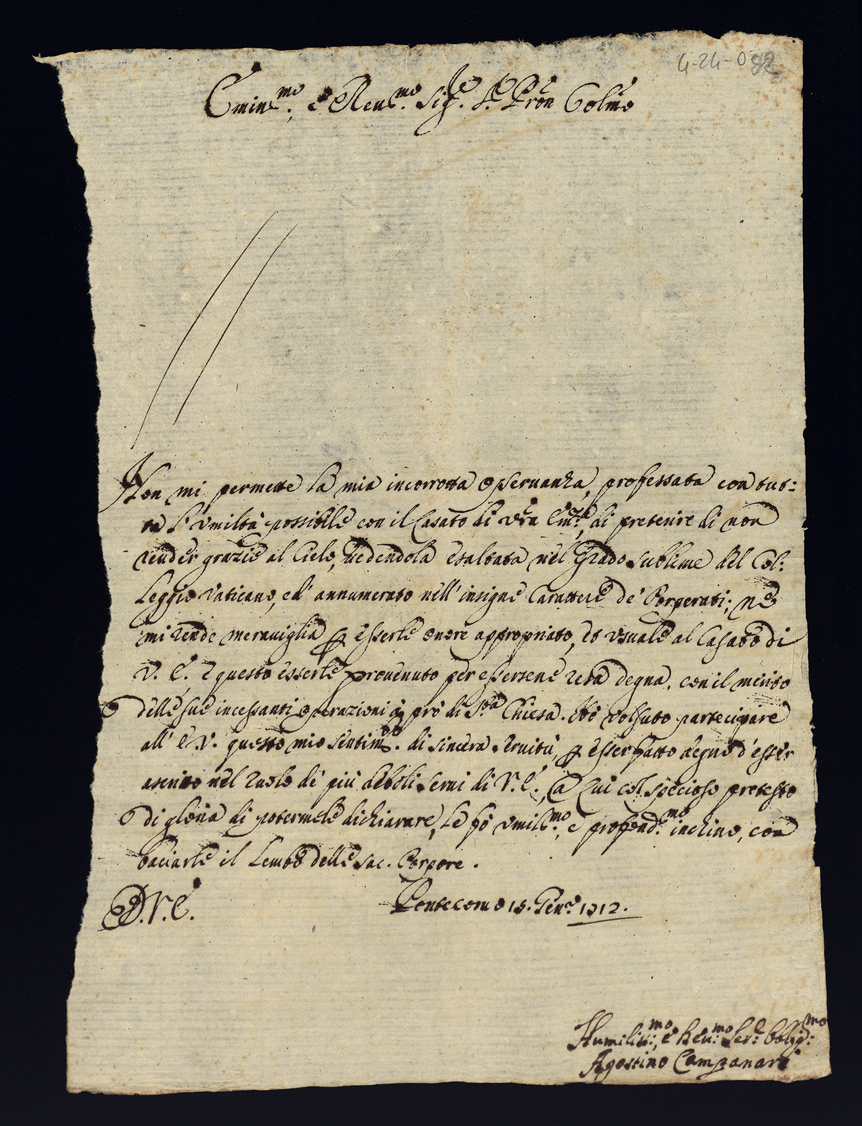 4-24-092
Emin.mo, e Reu.mo Sig.re P.re Pron Colmo
Non mi permette la mia incorrotta osseruanza, professata con tut-
ta l'vmiltà possibile con il Casato di vra Em.za, di preterire di non
render grazie al Cielo, uedendola esaltata nel Grado sublime del Col-
leggio Vaticano, ed' annumerato nell' insigne Carattere de' Porporati; ne
mi rende merauiglia p esserle onore appropriato, et vsuale al Casato di
V. E. e questo esserle prouenuto per essersene resa degna, con il merito
delle sue incessanti operazioni à prò di S.ta Chiesa. Hò uolsuto partecipare
all' E V. questo mio sentim.to di sincera seruitù, p esser fatto degno d'esser
ascritto nel ruolo de più deboli serui di V. E., a cui col specioso pretesto
di gloria di potermele dichiarare, le fò vmil.mo, e profond.mo inchino, con
baciarle il Lembo delle sac. Porpore.
D. V. E. Pontecoruo 15. Gen.o 1712.
Humiliss.mo, e Reu.mo Ser.e Oblig.mo
Agostino Campanari